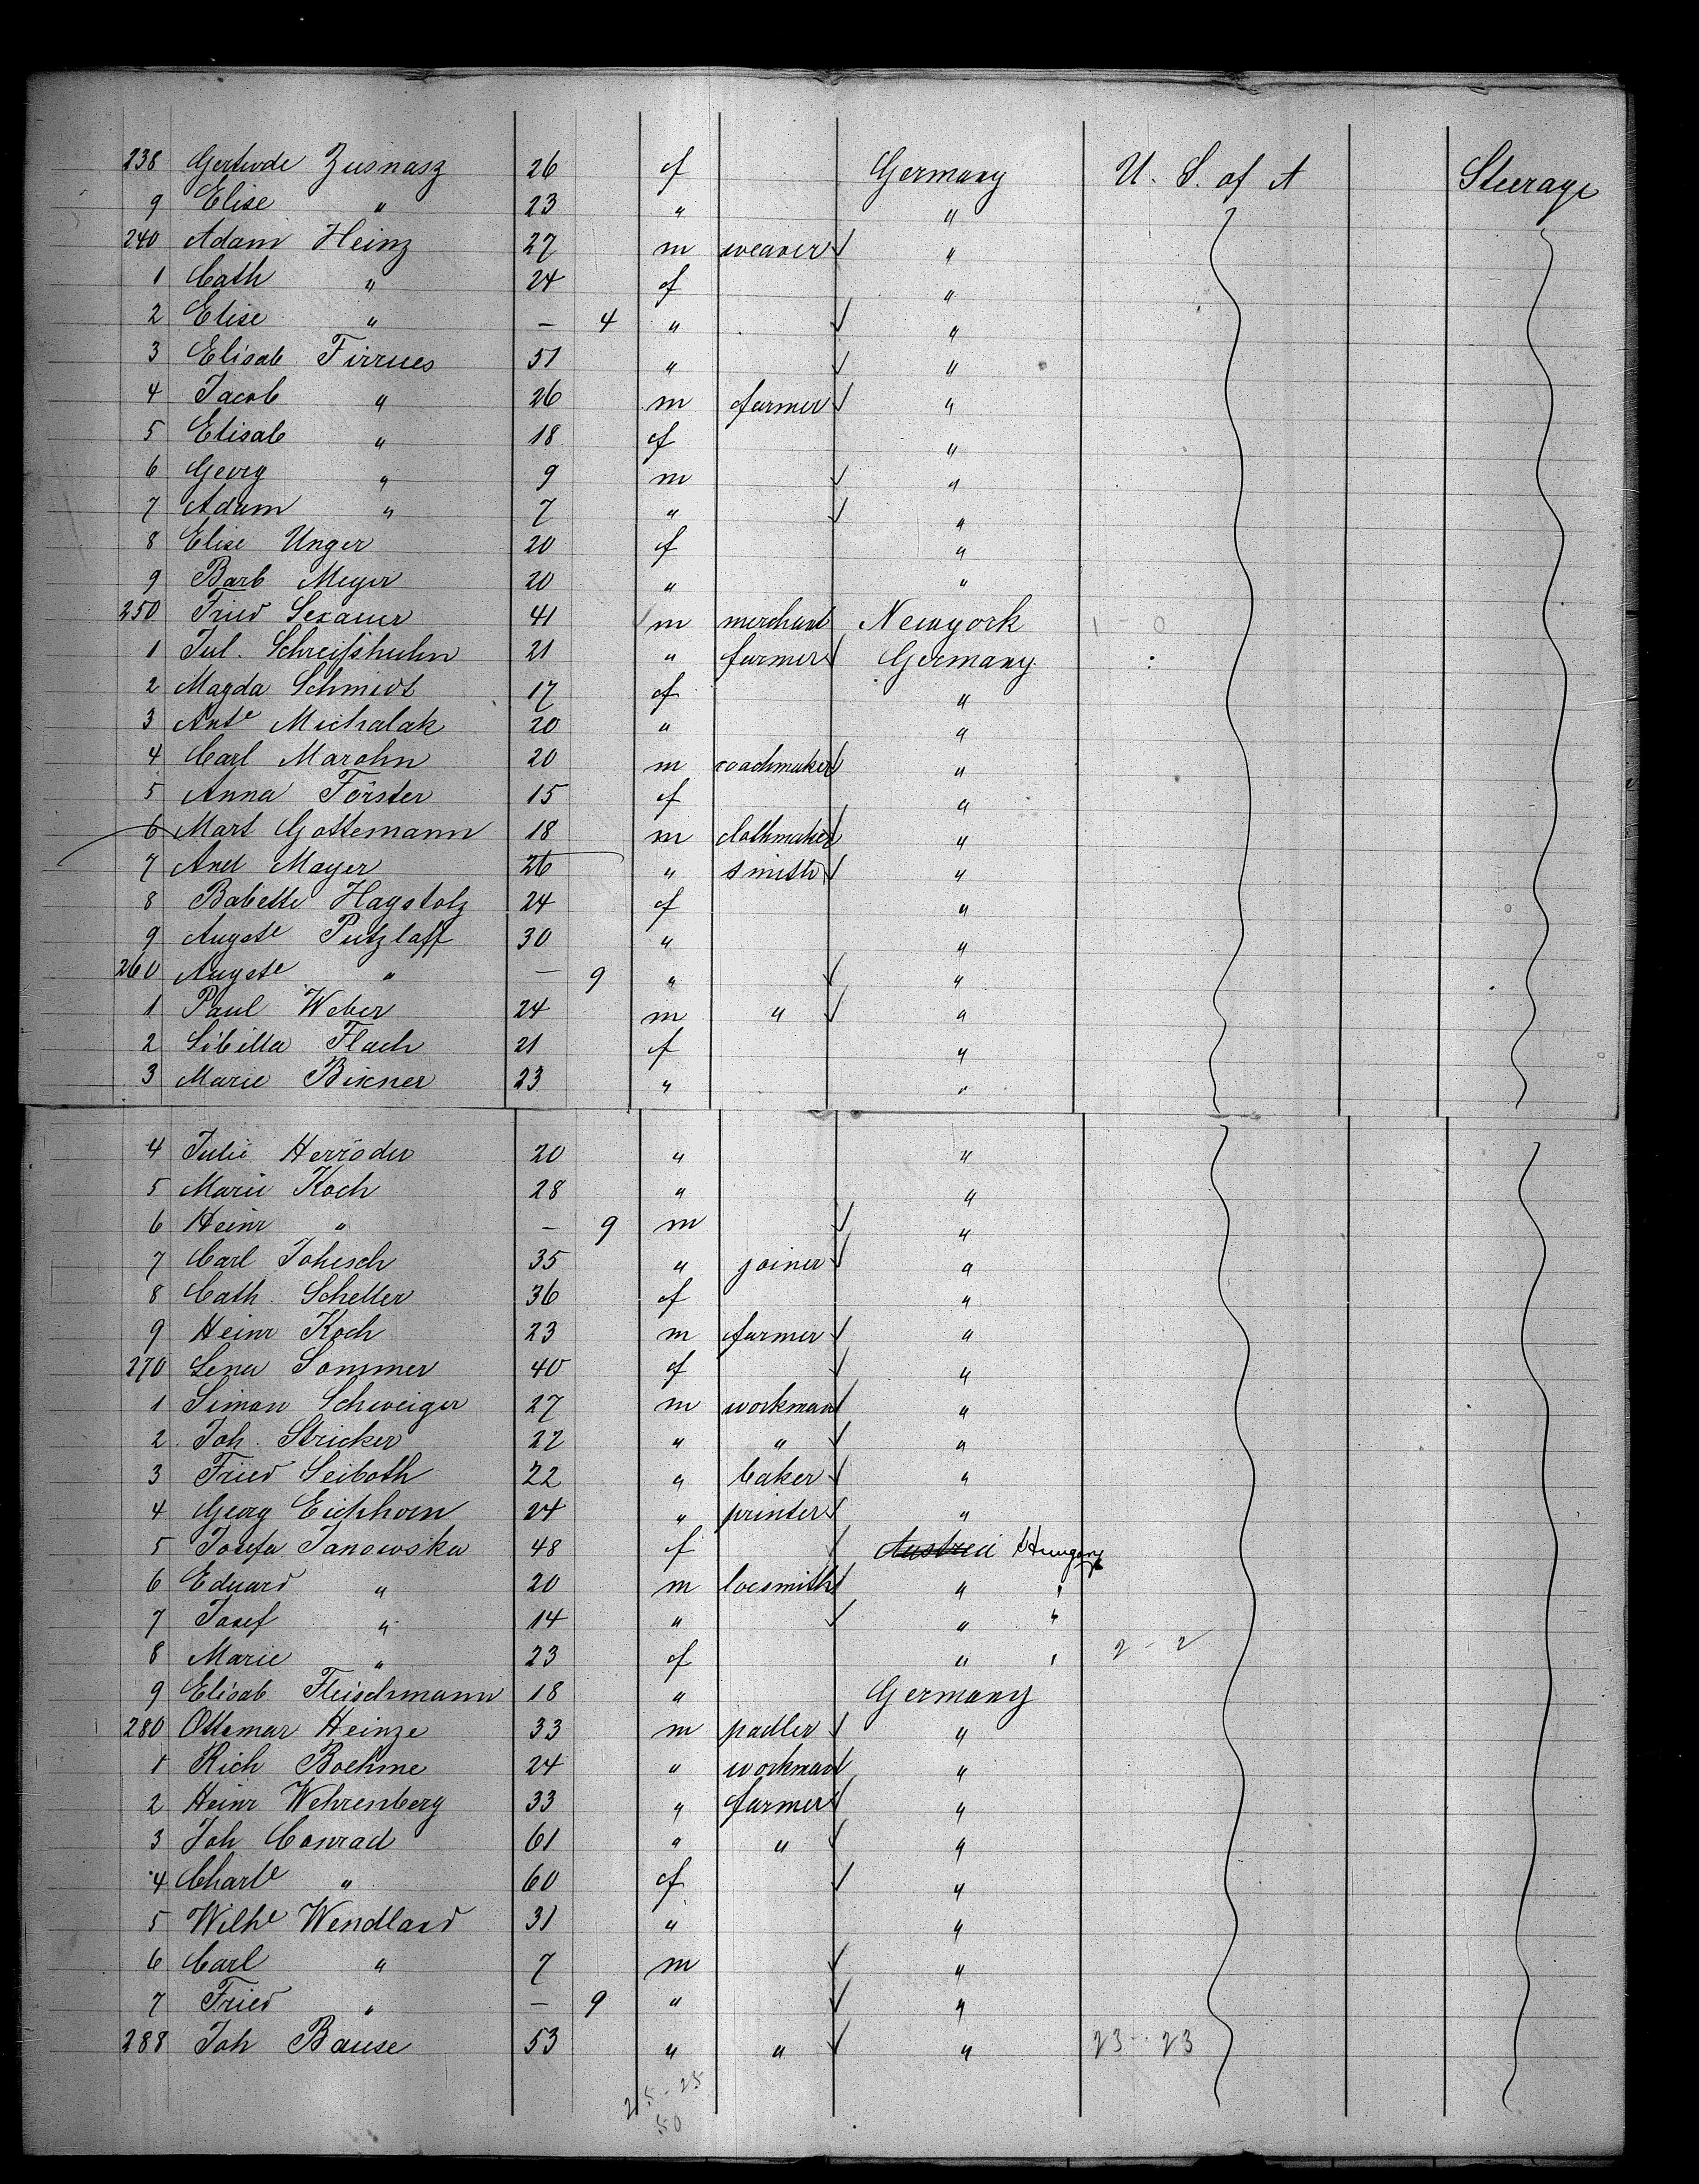 238 Gertrude Zusnasz 26 f Germany U. S. of A Steerage
9 Elise " 23 " "
240 Adam Heinz 27 m weaver "
1 Cath " 24 f "
2 Elise " — 4 " "
3 Elisab Firrues 51 " "
4 Jacob " 26 m farmer "
5 Elisab " 18 f "
6 Georg " 9 m "
7 Adam " 7 " "
8 Elise Unger 20 f "
9 Barb Meyer 20 " "
250 Fried Sexauer 41 m merchant Newyork 1 - 0
1 Jul. Schreifshuhn 21 " farmer Germany
2 Magda Schmidt 17 f "
3 Ante Michalak 20 " "
4 Carl Marohn 20 m coachmaker "
5 Anna Förster 15 f "
6 Mart Gottemann 18 m clothmaker "
7 And Mayer 26 " smith "
8 Babette Hagstolz 24 f "
9 Auguste Putzlaff 30 " "
260 Auguste " — 9 " "
1 Paul Weber 24 m " "
2 Sibilla Flach 21 f "
3 Marie Bixner 23 " "
4 Julie Herröder 20 " "
5 Marie Koch 28 " "
6 Heinr " — 9 m "
7 Carl Johesch 35 " joiner "
8 Cath. Scheller 36 f "
9 Heinr Koch 23 m farmer "
270 Lena Sommer 40 f "
1 Simon Schweiger 27 m workman "
2 Joh. Stricker 22 " " "
3 Fried Seiboth 22 " baker "
4 Georg Eichhorn 24 " printer "
5 Josefa Janowska 48 f Austria Hungary
6 Eduard " 20 m locsmith " "
7 Josef " 14 " " "
8 Marie " 23 f " " 2 - 2
9 Elisab Fleischmann 18 " Germany
280 Ottomar Heinze 33 m padler "
1 Rich Boehme 24 " workman "
2 Heinr Wehrenberg 33 " farmer "
3 Joh Conrad 61 " " "
4 Charle " 60 f "
5 Wilhe Wendland 31 " "
6 Carl " 7 m "
7 Fried " — 9 " "
288 Joh Bause 53 " " " 23 - 23
25 - 25
50